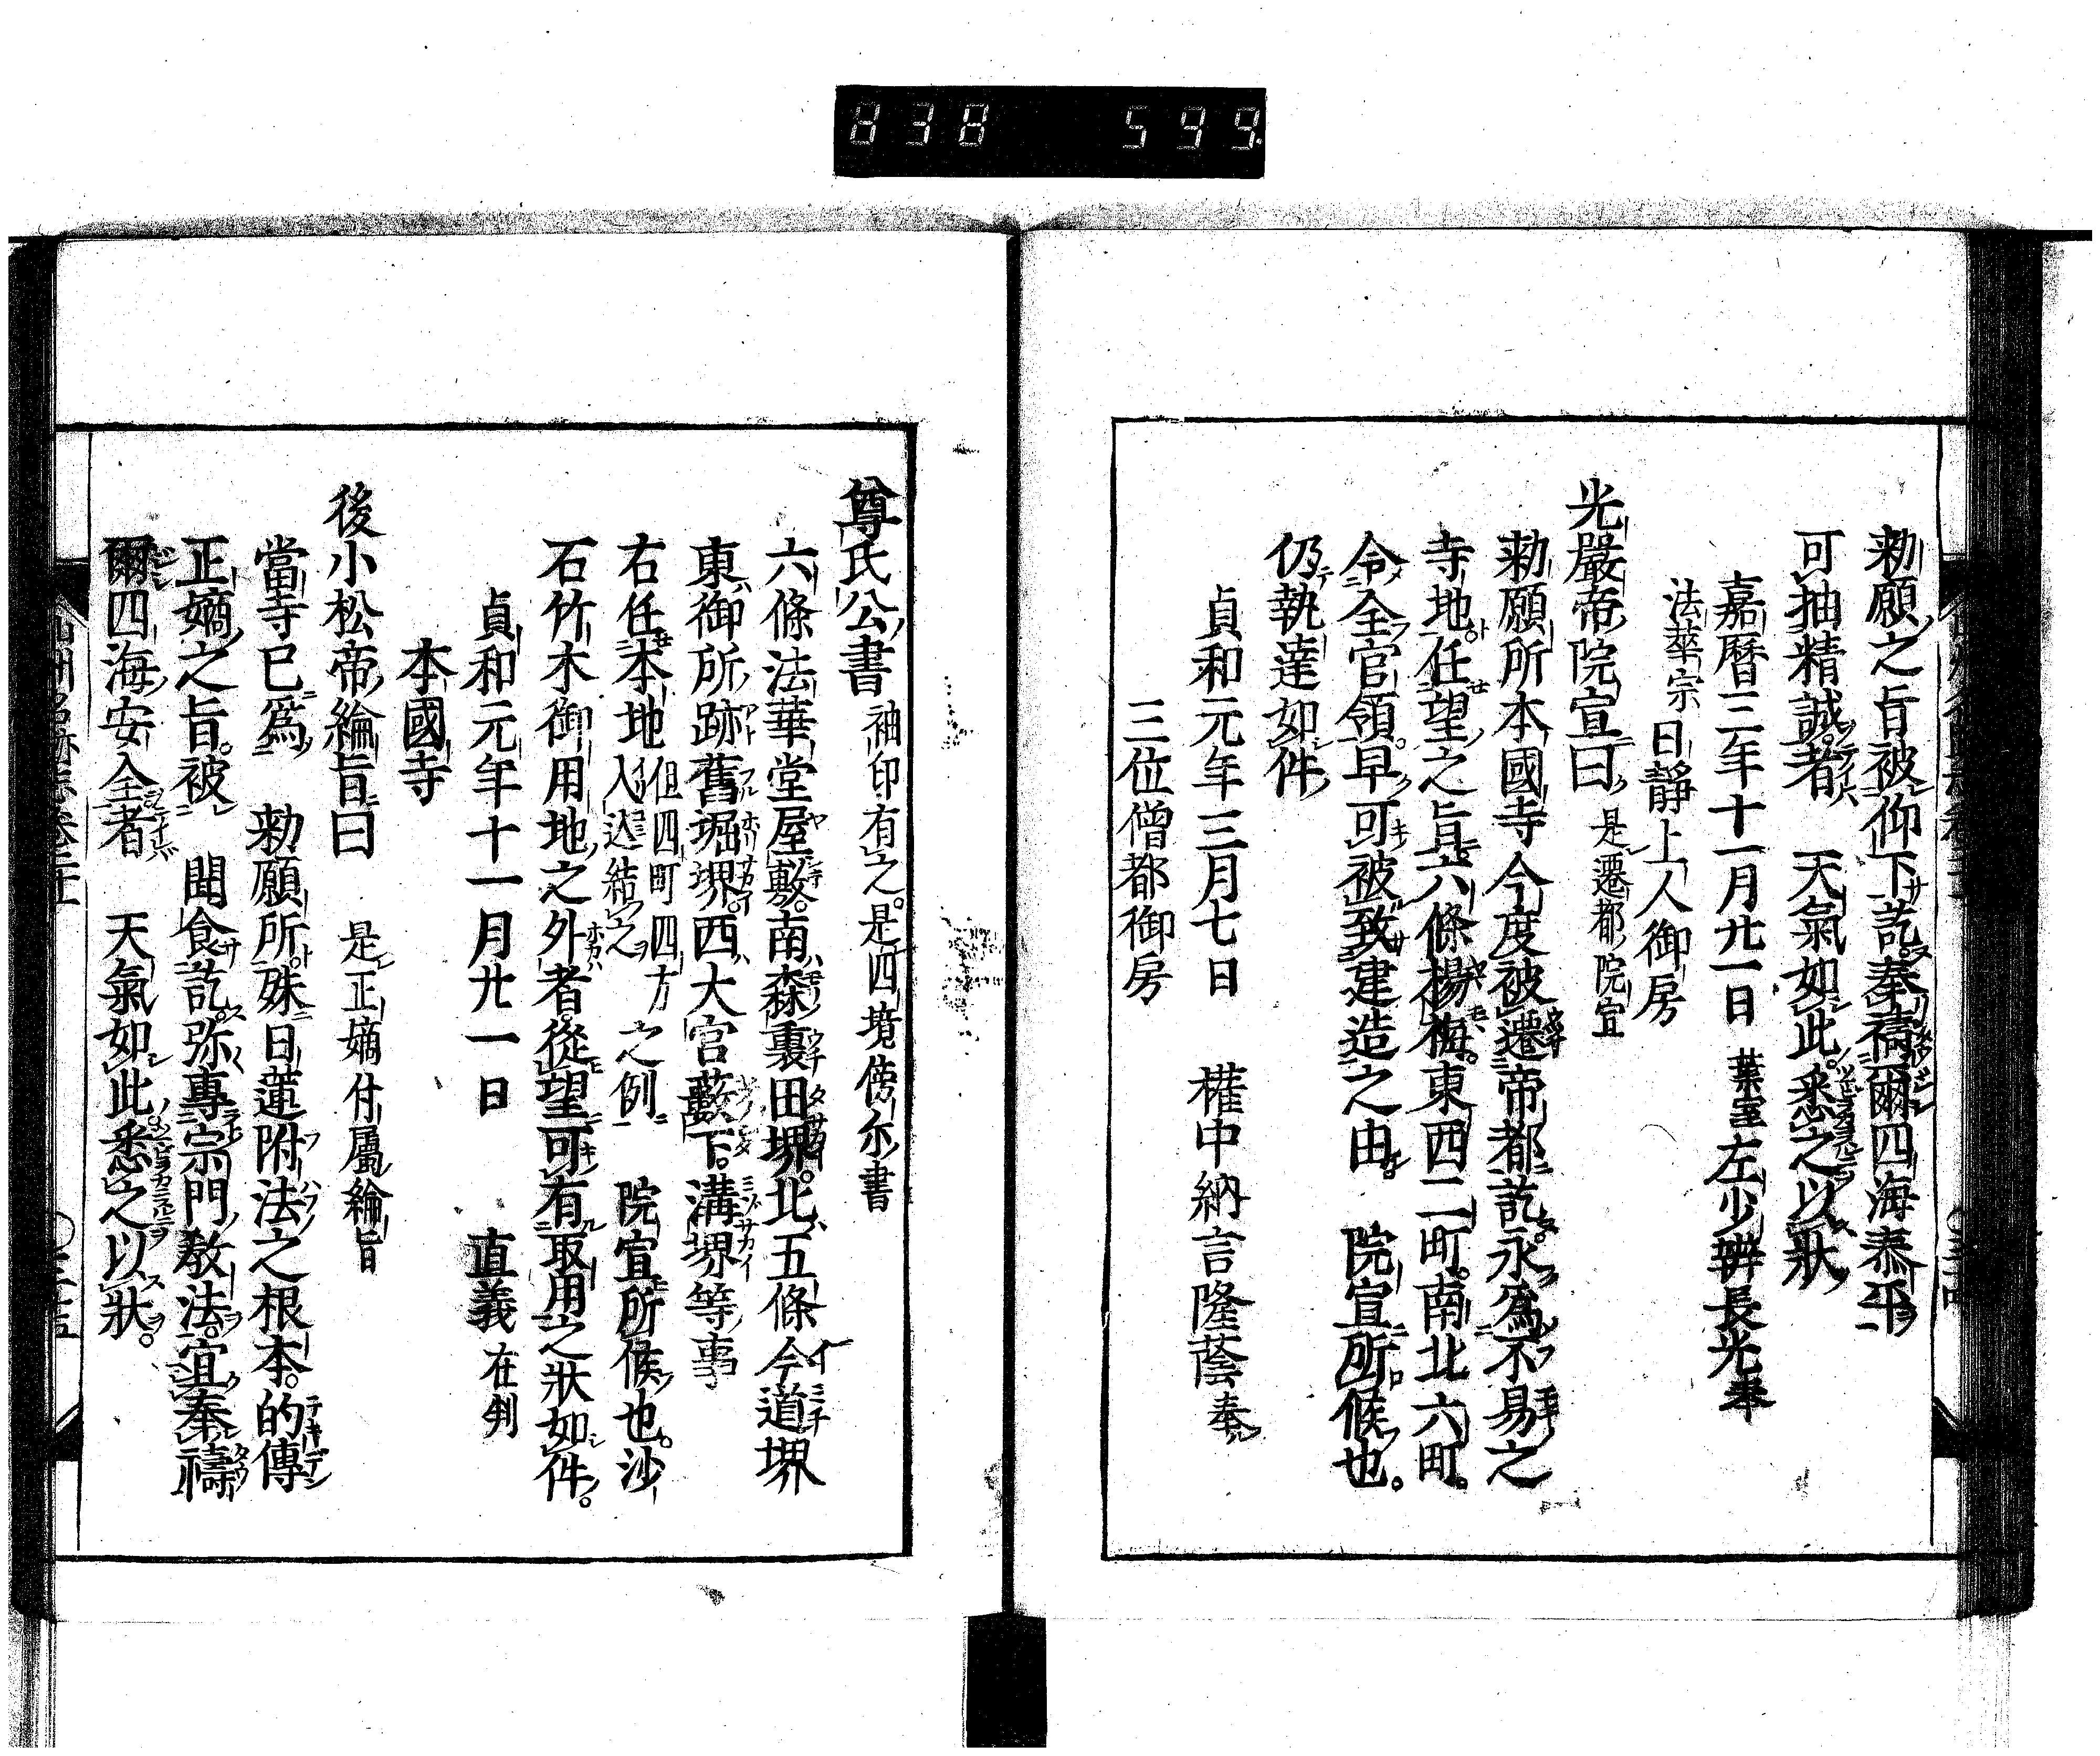 838 599
勅願之旨被仰下訖奉禱爾四海泰平
可抽精誠者 天氣如此悉之以狀
嘉曆三年十一月廿一日 葉室左少辨長光奉
法華宗日靜上人御房
光嚴帝院宣曰 是遷都院宣
勅願所本國寺今度被遷帝都訖永爲不易之
寺地任望之旨六條楊梅東西二町南北六町
令全官領早可被致建造之由 院宣所候也
仍執達如件
貞和元年三月七日 權中納言隆蔭奉
三位僧都御房
尊氏公書 袖印有之是四境傍示書
六條法華堂屋敷南森裏田堺北五條今道堺
東御所跡舊堀堺西大宮藪下溝堺等事
右任本地 但四町四方入遝結之 之例 院宣所候也沙
石竹木御用地之外者從望可有取用之狀如件
貞和元年十一月廿一日 直義在判
本國寺
後小松帝綸旨曰 是正嫡付屬綸旨
當寺已爲 勅願所殊日蓮附法之根本的傳
正嫡之旨被 聞食訖弥專宗門敎法宜奉禱
爾四海安全者 天氣如此悉之以狀